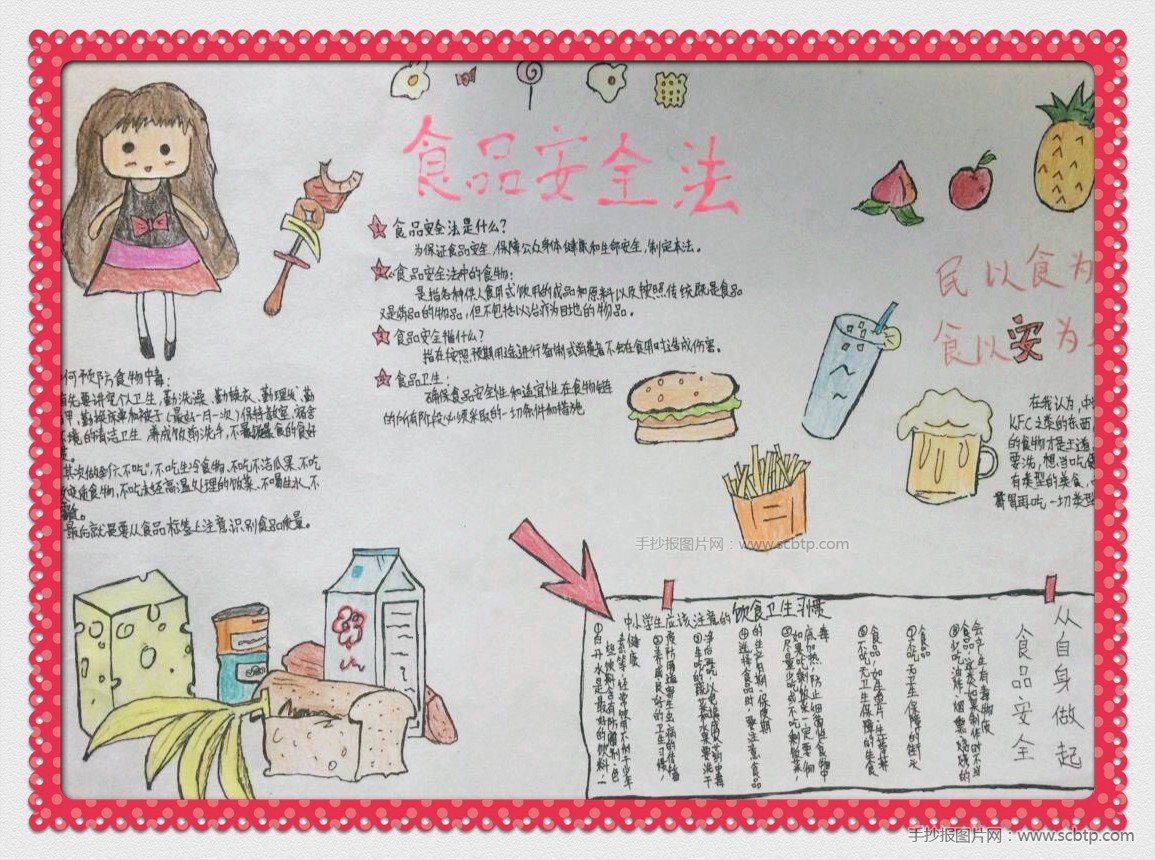 食品安全法
食品安全法是什么?
为保证食品安全,保障公众身体健康和生命安全,制定本法。
食品安全法中的食物:
是指各种供人食用或饮用的成品和原料以及按照传统既是食品
又是药品的物品,但不包括以治疗为目地的物品。
食品安全指什么?
指在按照预期用途进行备制或消费者不会在食用时造成伤害。
食品卫生:
确保食品安全性和适宜性在食物链
的所有阶段必须采取的一切条件和措施
民以食为
食以安为
何预防食物中毒:
先要讲究个卫生,勤洗澡、勤换衣、勤理发、勤
甲,勤换床单加被子(最好一月一次)保持教室、宿舍
环境的清洁卫生 养成饭前洗手,不暴饮暴食的良好
其次做到"六不吃",不吃生冷食物、不吃不洁瓜果、不吃
变质食物,不吃未经高温处理的饭菜、不喝生水、不
最后就是要从食品标签上注意识别食品质量。
在我认为,中
KFC之类的东西
的食物才是王道
要洗,想当吃
有类型的美食,
再吃一切类型
手抄报图片网:www.scbtp.com
中小学生应该注意的饮食卫生习惯
①白开水是最好的饮料,一
些饮料含有防腐剂、色
素等,经常饮不利于少年
健康
②养成良好的卫生习惯,
预防肠道寄生虫病的传播
③生吃的蔬菜和水果要洗干
净后再吃,以免造成农药中毒
④选择食品时,要注意食品
的生产日期、保质期
⑤尽量少吃或不吃剩饭菜
如果吃剩饭菜一定要彻
底加热,防止细菌性食物中
毒
⑥不吃无卫生保障的生食
食品,如生鱼片、生荸荠
⑦不吃无卫生保障的街头
食品
⑧少吃油炸、烟熏、烧烤的
食品,这类如果制作时不当
会产生有毒物质
从自身做起
食品安全
手抄报图片网:www.scbtp.com